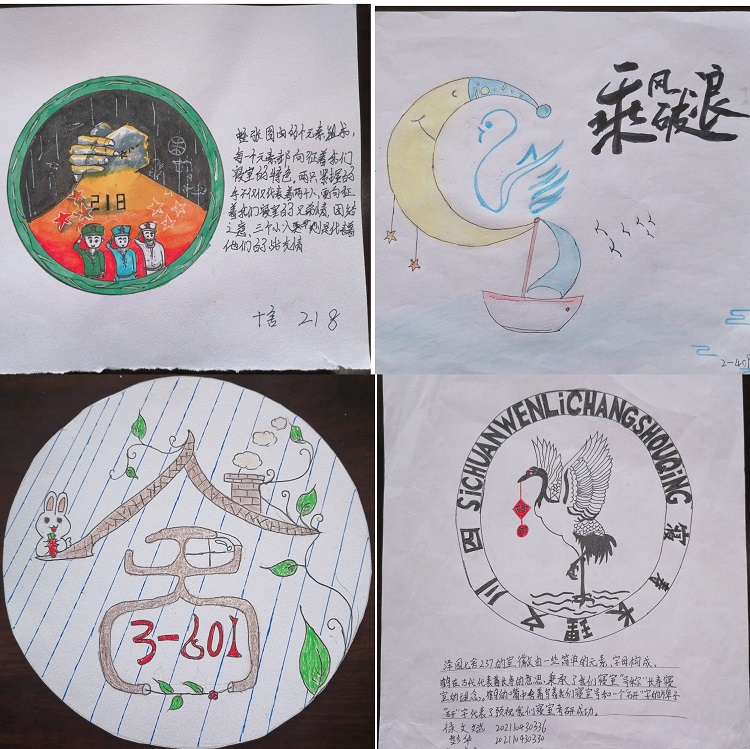 整张图由3个元素组成,
每一个元素都向征着我们
寝室的特色,两只紧握的
手不仅仅代表着两个人,更向征
着我们寝室的兄弟情,团结
之意,三个小人则是代表着
他们的
十舍 218
218
乘风破浪
3-601
SiCHUANWENLiCHANGSHOUQiNG
四川文理长寿寝
萍园七舍237的室徽由一些简单的元素、字母构成。
鹤在古代代表着长寿的意思,秉承了我们寝室“长寿寝
室的组合。鹤的嘴中含着写着我们寝室号和一个“研”字的牌子
“研”字代表了预祝我们寝室考研成功。
徐文
202110430336
202110430330